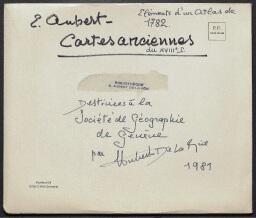 E. Aubert - Eléments d'un Atlas de 1782.
Cartes anciennes
du XVIIIe S.
P.P.
BIBLIOTHÈQUE
E. AUBERT DE LA RÜE
Destinées à la
Société de Géographie
de Genève
par Aubert De La Rüe
1981